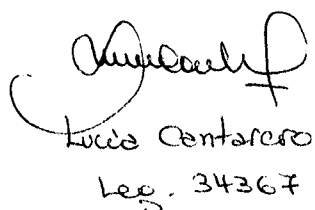 Lucía Cantarero
Leg. 34367